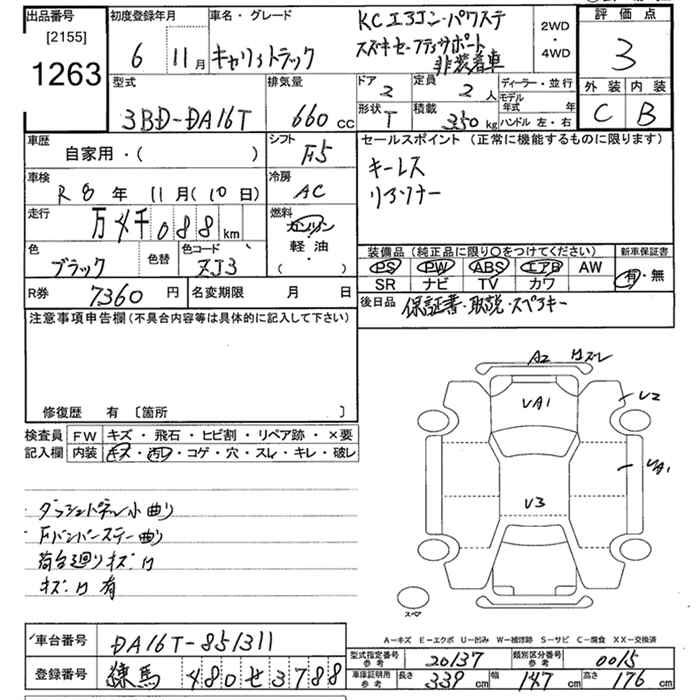 出品番号
[2155]
1263
初度登録年月
6 11月
車名・グレード
キャリィトラック
KCエアコン・パワステ
スズキセーフティサポート
非装着車
2WD
・
4WD
評価点
3
外装 内装
C B
型式
3BD-DA16T
排気量
660 cc
ドア 2
定員 2 人
形状 T
積載 350 kg
ディーラー・並行
モデル年式 年
ハンドル 左・右
車歴
自家用・( )
シフト
F5
車検
R 8 年 11 月( 10 日)
冷房
AC
走行
万 4千 0 8 8 km
燃料
ガソリン
軽・油
( )
色
ブラック
色替
色コード
ZJ3
R券 7360 円
名変期限 月 日
セールスポイント (正常に機能するものに限ります)
キーレス
リアソナー
装備品 (純正品に限り○をつけてください)
PS PW ABS エアB AW
SR ナビ TV カワ
新車保証書
有・無
後日品 保証書・取説・スペアキー
注意事項申告欄(不具合内容等は具体的に記入して下さい)
修復歴 有 〔箇所 〕
検査員記入欄
FW キズ・飛石・ヒビ割・リペア跡・×要
内装 キズ・汚レ・コゲ・穴・スレ・キレ・破レ
ダッシュパネル小曲り
Fバンパーステー曲り
荷台廻りキズ凹
キズ凹有
A2 凹ズレ
UA1
U2
UA1
U3
スペア
A-キズ E-エクボ U-凹み W-補修跡 S-サビ C-腐食 XX-交換済
車台番号 DA16T-851311
登録番号 練馬 480 せ 3788
型式指定番号 参考 20137
類別区分番号 参考 0015
車庫証明用 参考 長さ 339 cm 幅 147 cm 高さ 176 cm